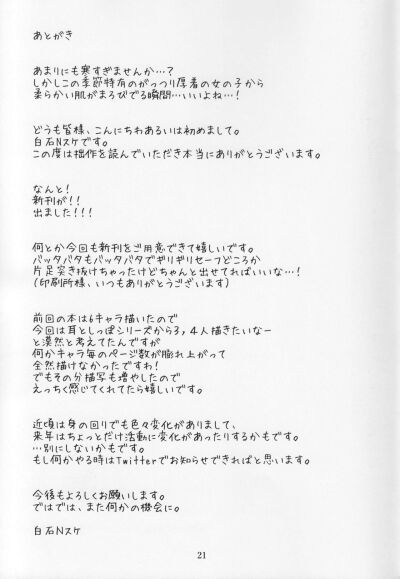 あとがき
あまりにも寒すぎませんか…?
しかしこの季節特有のがっつり厚着の女の子から
柔らかい肌がまろびでる瞬間…いいよね…!
どうも皆様、こんにちわあるいは初めまして。
白石Nスケです。
この度は拙作を読んでいただき本当にありがとうございます。
なんと!
新刊が!!
出ました!!!
何とか今回も新刊をご用意できて嬉しいです。
バッタバタもバッタバタでギリギリセーフどころか
片足突き抜けちゃったけどちゃんと出せてればいいな…!
(印刷所様、いつもありがとうございます)
前回の本は6キャラ描いたので
今回は耳としっぽシリーズから3,4人描きたいなー
と漠然と考えてたんですが
何かキャラ毎のページ数が膨れ上がって
全然描けなかったですわ!
でもその分描写も増やしたので
えっちく感じてくれてたら嬉しいです。
近頃は身の回りでも色々変化がありまして、
来年はちょっとだけ活動に変化があったりするかもです。
…別にしないかもです。
もし何かやる時はTwitterでお知らせできればと思います。
今後もよろしくお願いします。
ではでは、また何かの機会に。
白石Nスケ
21